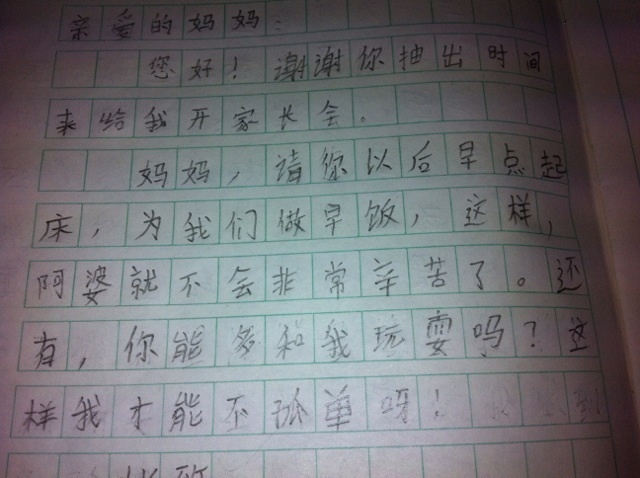 亲爱的妈妈：
您好！谢谢你抽出时间
来给我开家长会。
妈妈，请你以后早点起
床，为我们做早饭，这样，
阿婆就不会非常辛苦了。还
有，你能多和我玩耍吗？这
样我才能不孤单呀！